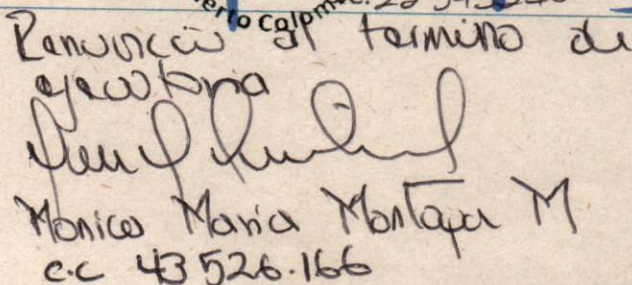 erto Colom
Renuncio al termino de
ejecutoria
Monica Maria Montoya M
c.c 43 526.166